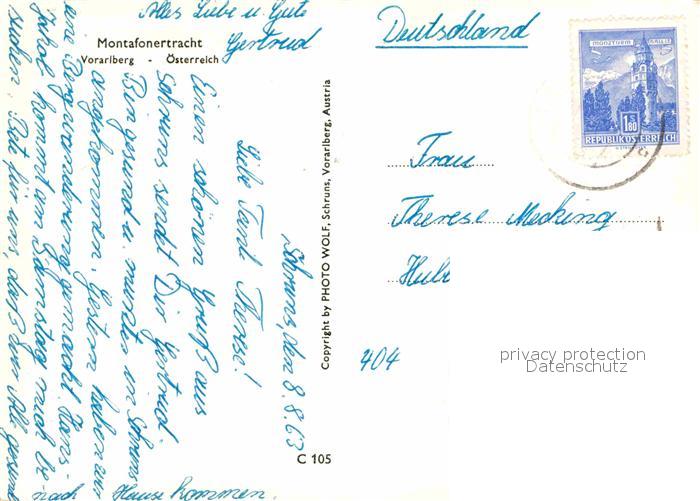 Montafonertracht
Vorarlberg - Österreich
Schruns, den 8.8.63
Liebe Tante Therese!
Einen schönen Gruß aus
Schruns sendet Dir Gertrud.
Bin gesund u. munter in Schruns
angekommen. Gestern haben wir
eine Bergwanderung gemacht. Hans-
kommt am Samstag mich be-
suchen. Bete für uns, daß wir alle gesund
nach Hause kommen.
Alles Liebe u. Gute
Gertrud
Copyright by PHOTO WOLF, Schruns, Vorarlberg, Austria
C 105
Deutschland
MÜNZTURM HALL I.T.
1S80
REPUBLIK ÖSTERREICH
Frau
Therese Mecking
404
privacy protection
Datenschutz